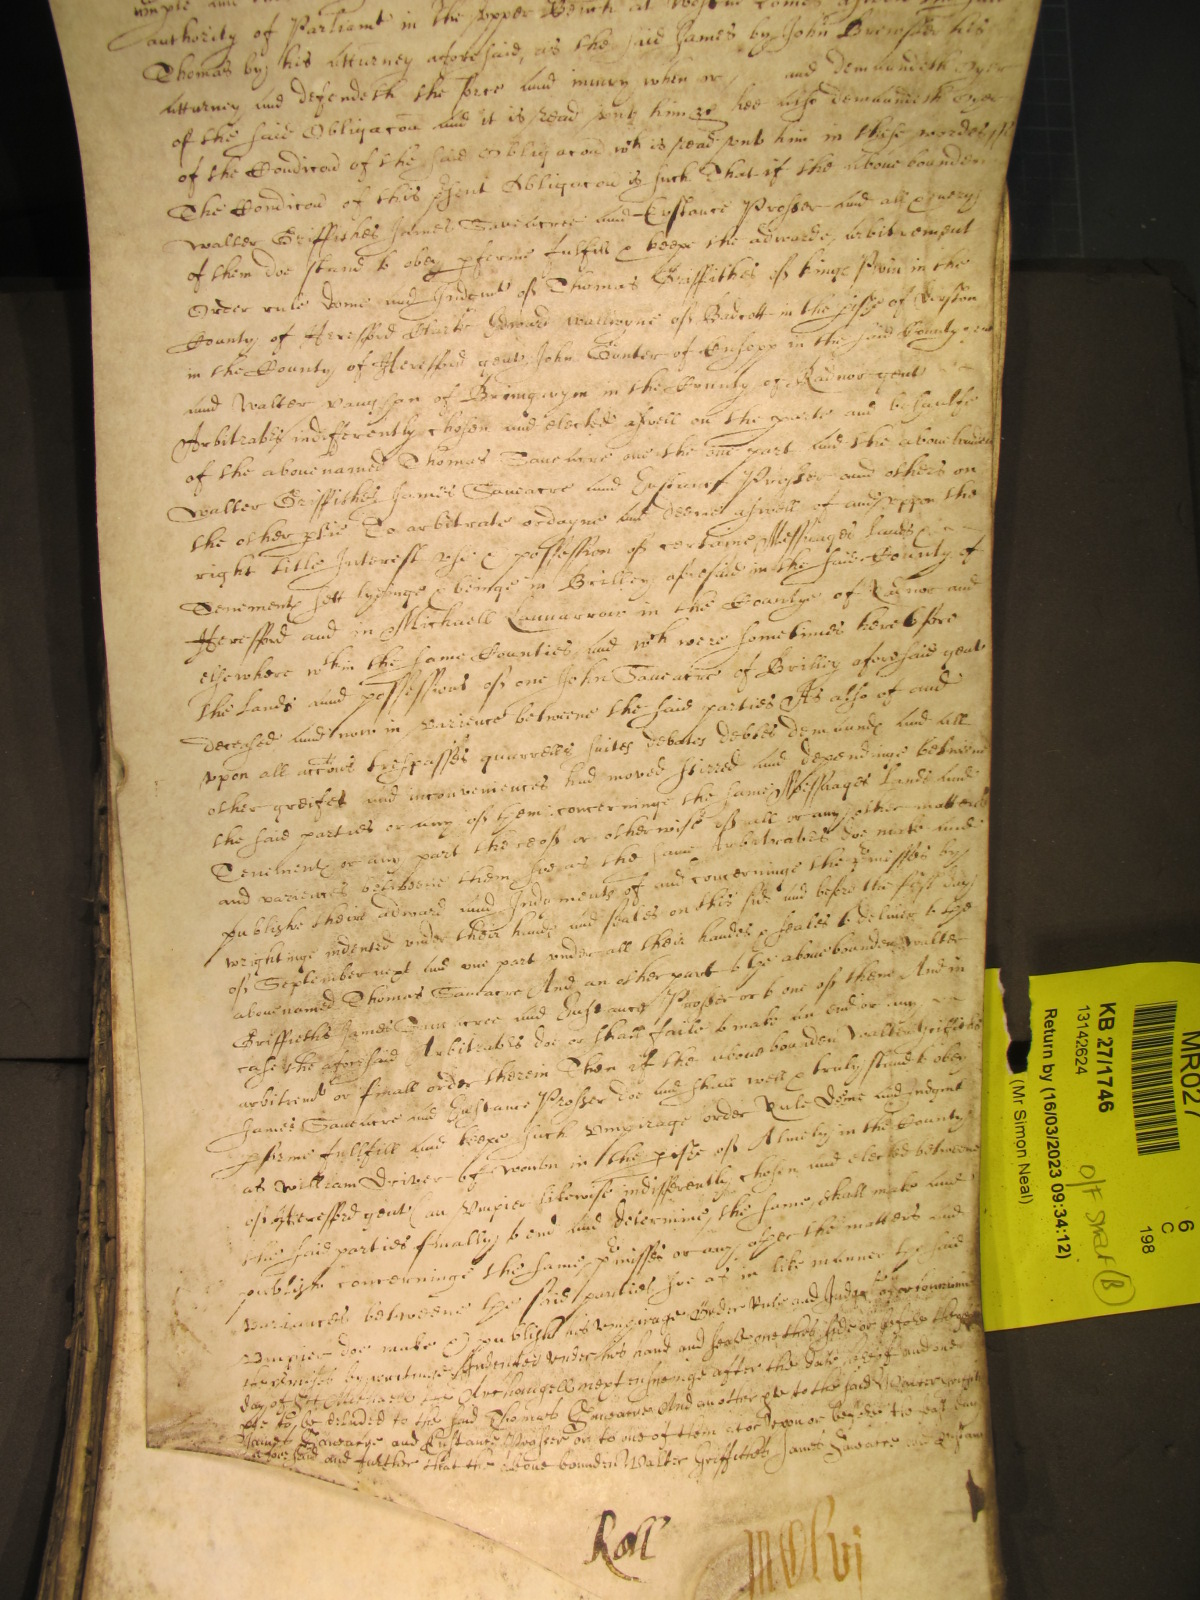 authority of Parliamt in the Upper Bench at
Thomas by his Atturney aforesaid, as the said James by John Brewster his
Atturney and defendeth the force and iniury when &c and demaundeth Oyer
of the said Obligacon and it is read unto him &c hee also demaundeth Oyer
of the Condicon of the said Obligacon wch is read unto him in these wordes
The Condicon of this psent Obligacon is such That if the above bounden
Walter Griffithes James Saveacre and Eustance Prosser and all & every
of them doe stand to obey pforme fulfill & keepe the adwarde, arbitrement
Order rule dome and Judgmt of Thomas Griffithes of kings in the
County of Hereford Clarke Edward Wallwyne of in the pishe of
in the County of Hereford gent John Gunter of in the said County gent
and Walter vaughan of in the County of Radnor gent
Arbitrators indifferently chosen and elected aswell on the parte and behaulfe
of the abovenamed Thomas Saveacre one the one part and the above bounden
Walter Griffithes James Saveacre and Eustance Prosser and others on
the other ptie To arbitrate ordayne and deeme aswell of and uppon the
right title Interest use & possession of certaine Messuages lands &
Tenements sett lyeinge & beinge in Brilley aforesaid in the said County of
Hereford and in Michaell in the Countye of Radnor and
elsewhere wthin the same Counties, and wch were sometimes heretofore
the Lands and possessions of one John Saveacre of Brilley aforesaid gent
deceased and now in varience betweene the said parties As also of and
upon all accons trespasses quarrells suites debates debtes demaunds and all
other greifes and inconveniences had moved stirred and dependinge betweene
the said parties or any of them concerninge the same Messuages Lands and
Tenements or any part thereof or otherwise of all or any other matters
and variences betweene them soe as the same Arbitrators doe make and
publishe theire adward and Judgments of and concerninge the pmisses by
wrightinge indented under their hands and seales on this side and before the first day
of September next and one part under all their handes & seales to deliver to the
abovenamed Thomas Saveacre And an other part to the above bounden Walter
Griffithes James Saveacre and Eustance Prosser or to one of them And in
case the aforesaid Arbitrators doe or shall faile to make an end or any
arbitremt or finall order therein Then if the above bounden Walter Griffithes
James Saveacre and Eustance Prosser doe and shall well & truly stand to obey
pforme fulfill and keepe such Umpirage order Rule Dome and judgmt
as William Driver of in the pishe of Almely in the County
of Hereford gent an Umpier likewise indifferently chosen and elected betweene
the said parties finally to end and determine the same, shall make and
publish concerninge the same pmisses or any other the matters and
variances betweene the said parties soe as in like manner the said
Umpier doe make & publish his Umpirage Order Rule and Judgmt of or concerninge
the premisses by writinge Indented under his hand and seale one this side or before the
day of St Michaell the Archangell next ensueinge after the date hereof and one
pte to be delivred to the said Thomas Saveacre And another pte to the said Walter Griffithes
James Saveacre and Eustance Prosser or to one of them att or upon or before the last day
aforesaid and further that the above bounden Walter Griffithes James Saveacre and Eustance
Roll
MDlvj
MR027
6
C
198
KB 27/1746
13142624
O/F Shelf (B)
Return by (16/03/2023 09:34:12)
(Mr Simon Neal)